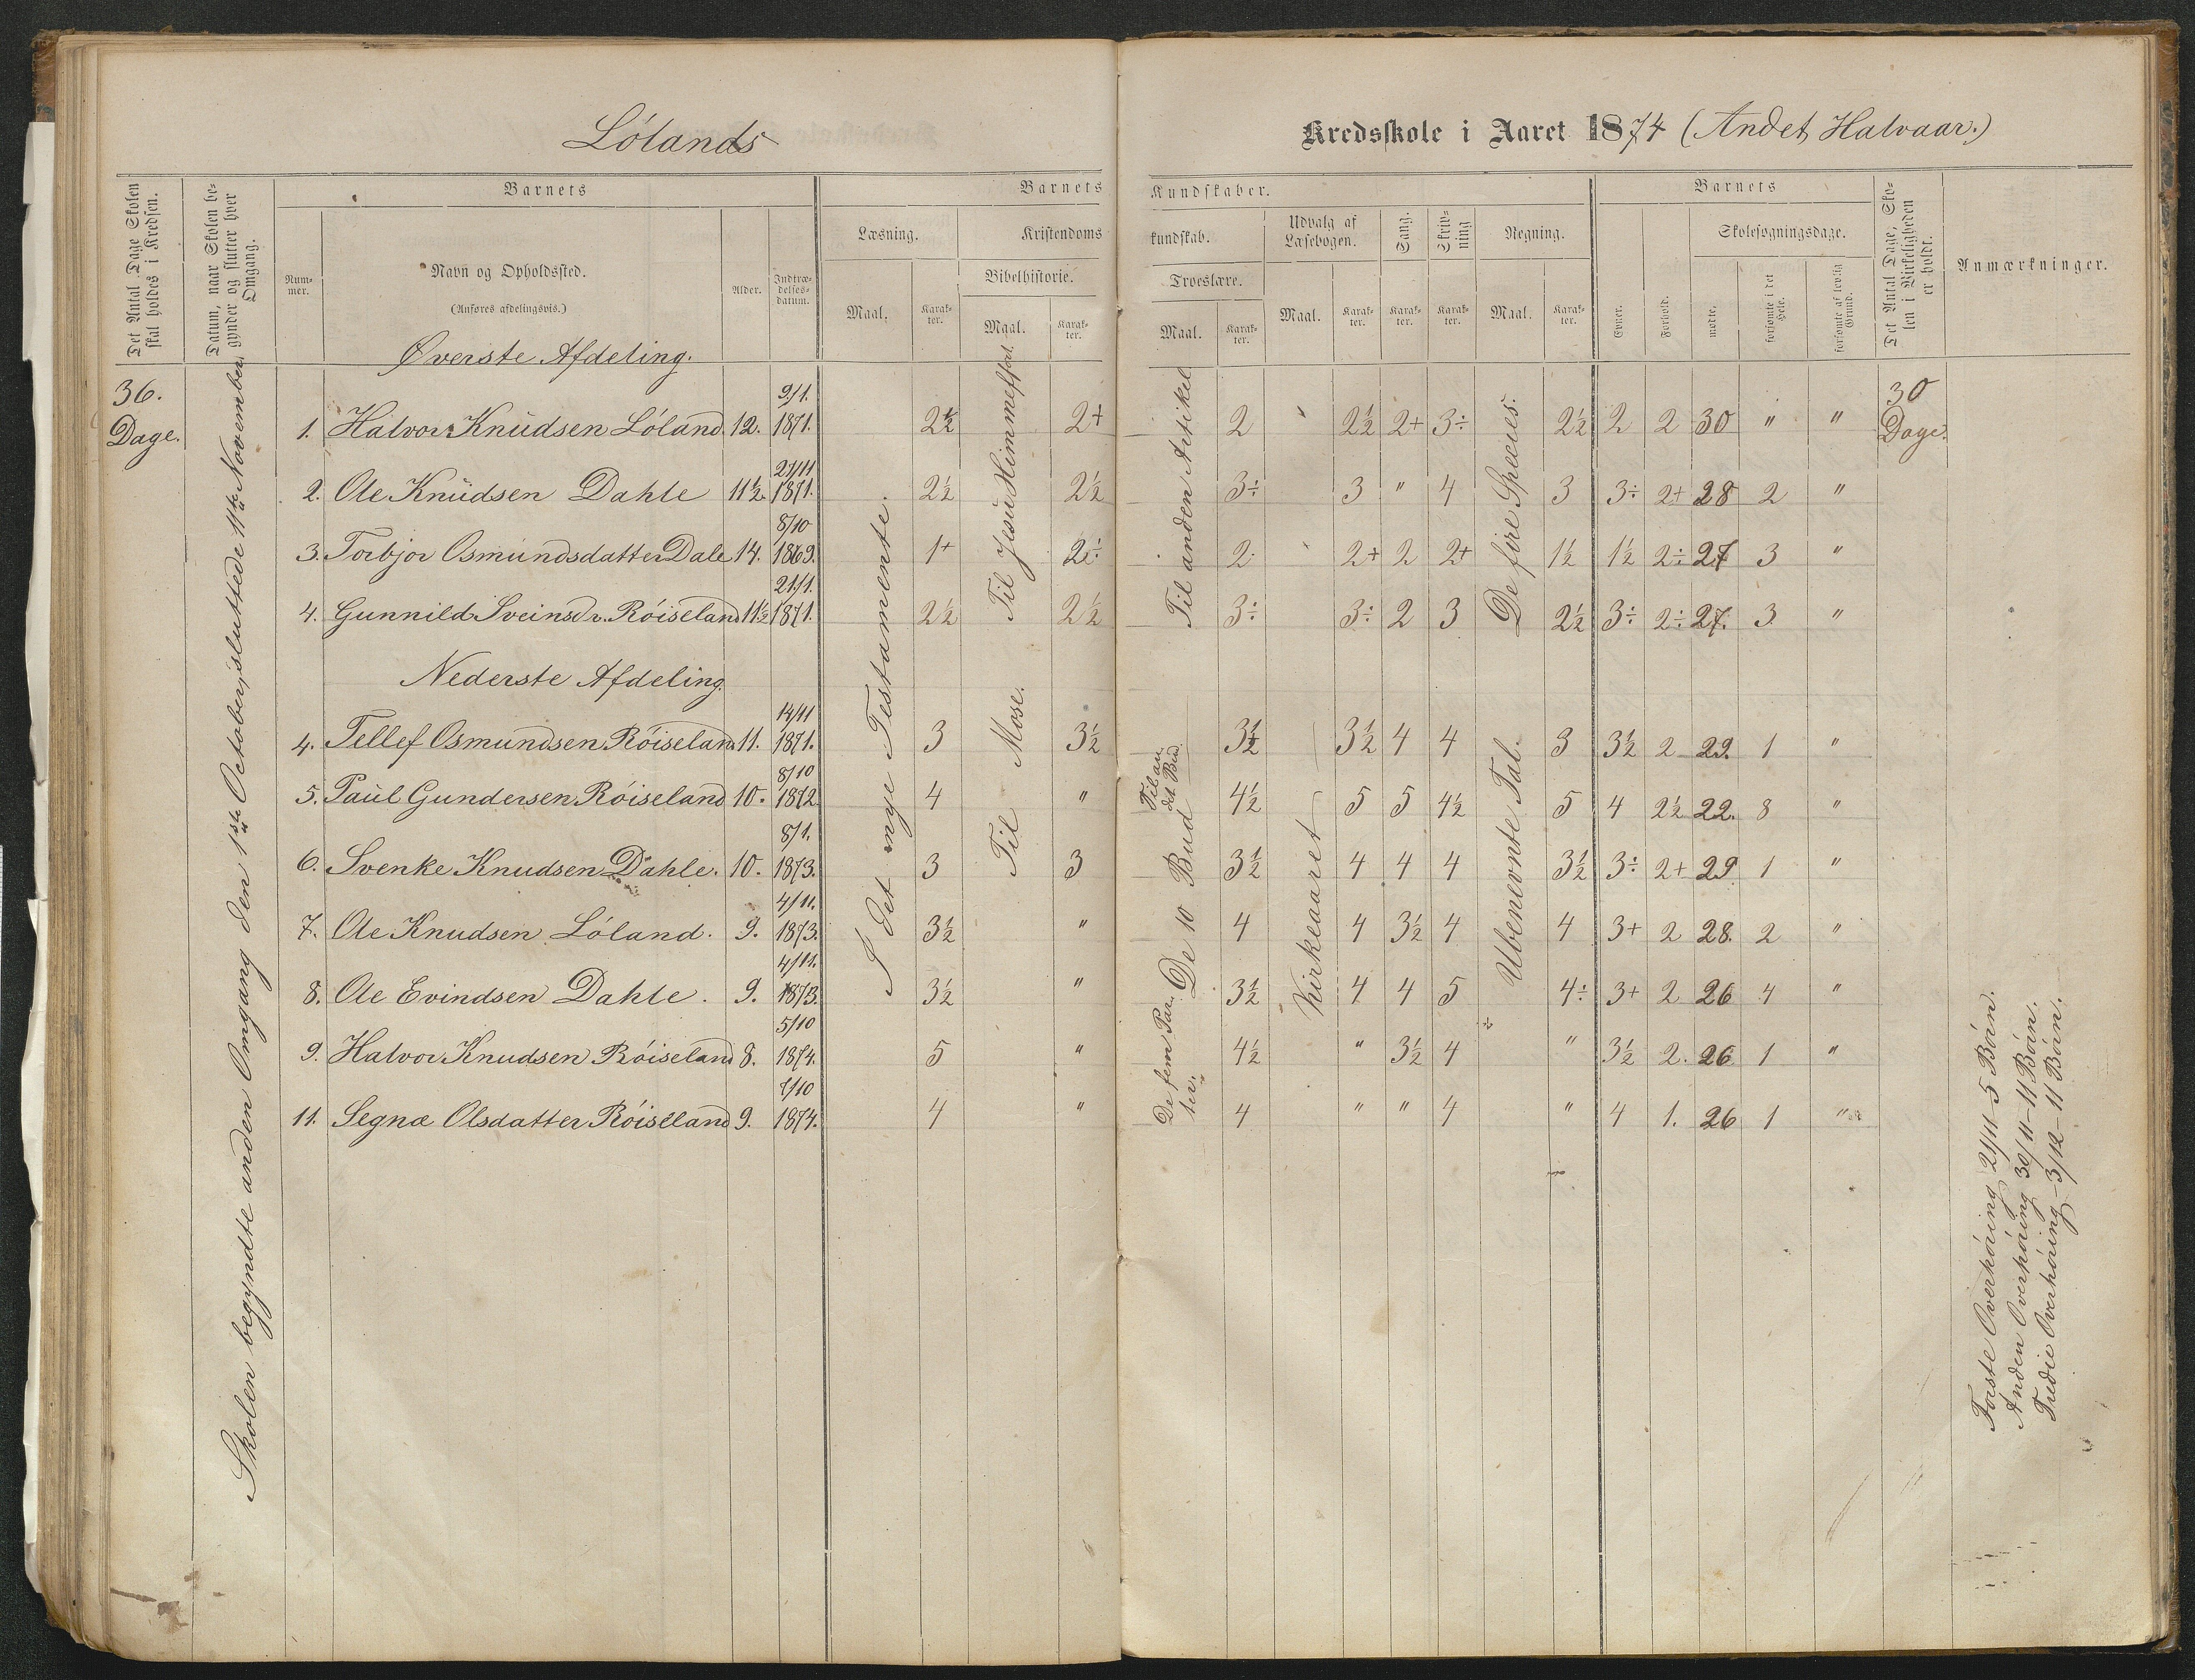 Lólands
Kredsskole i Aaret 1874 (Andet Halvaar.)
Det Antal Dage Skolen skal holdes i Kredsen.
Datum, naar Skolen begynder og slutter hver Omgang.
Barnets
Nummer.
Navn og Opholdssted.
(Anføres afdelingsvis.)
Alder.
Indtrædelses-datum.
Barnets Kundskaber.
Læsning.
Maal.
Karakter.
Kristendomskundskab.
Bibelhistorie.
Maal.
Karakter.
Troeslære.
Maal.
Karakter.
Udvalg af Læsebogen.
Maal.
Karakter.
Sang.
Karakter.
Skrivning
Karakter.
Regning.
Maal.
Karakter.
Barnets
Evner.
Forhold.
Skolesøgningsdage.
mødte.
forsømte i det Hele.
forsømte af lovlig Grund.
Det Antal Dage, Skolen i Virkeligheden er holdt.
Anmærkninger.
36. Dage.
Skolen begyndte anden Omgang den 1ste October, sluttede 11te November.
Øverste Afdeling.
1. Halvor Knudsen Lóland. 12. 9/1. 1871. 2½ 2+ 2 " 2½ 2+ 3÷ 2½ 2 2 30 " " 30 Dage.
2. Ole Knudsen Dahle 11½. 21/11 1871. 2½ 2½ 3÷ 3 " 4 3 3÷ 2+ 28 2 "
3. Torbjor Osmundsdatter Dale 14. 8/10 1869. 1+ 2÷ 2 2+ 2 2+ 1½ 1½ 2÷ 27 3 "
4. Gunnild Sveinsdr. Róiseland 11½ 21/1. 1871. 2½ 2½ 3÷ 3÷ 2 3 2½ 3÷ 2÷ 27. 3 "
Nederste Afdeling.
4. Tellef Osmundsen Róiseland 11. 14/11 1871. 3 3½ 3½ 3½ 4 4 3 3½ 2 29. 1 "
5. Paul Gundersen Róiseland 10. 8/10 1872. 4 " 4½ 5 5 4½ 5 4 2½ 22. 8 "
6. Svenke Knudsen Dahle. 10. 8/1. 1873. 3 3 3½ 4 4 4 3½ 3÷ 2+ 29 1 "
7. Ole Knudsen Lóland. 9. 4/11. 1873. 3½ " 4 4 3½ 4 4 3+ 2 28. 2 "
8. Ole Evindsen Dahle. 9. 4/11. 1873. 3½ " 3½ 4 4 5 4÷ 3+ 2 26 4 "
9. Halvor Knudsen Róiseland 8. 5/10 1874. 5 " 4½ " 3½ 4 " 3½ 2. 26 1 "
11. Segnæ Olsdatter Róiseland 9. 1/10 1874. 4 " 4 " " 4 " 4 1. 26 1 "
I det nye Testamente.
Til Jesu Himmelfart.
Til Mose.
Til anden Artikel
Til andet Bud.
De 10 Bud
De fem Parter.
Kirkeaaret
De fire Species.
Ubenevnte Tal.
Forste Overhóring 21/11 - 5 Bórn.
Anden Overhóring 30/11 - 11 Bórn.
Tredie Overhóring - 3/12 - 11 Bórn.